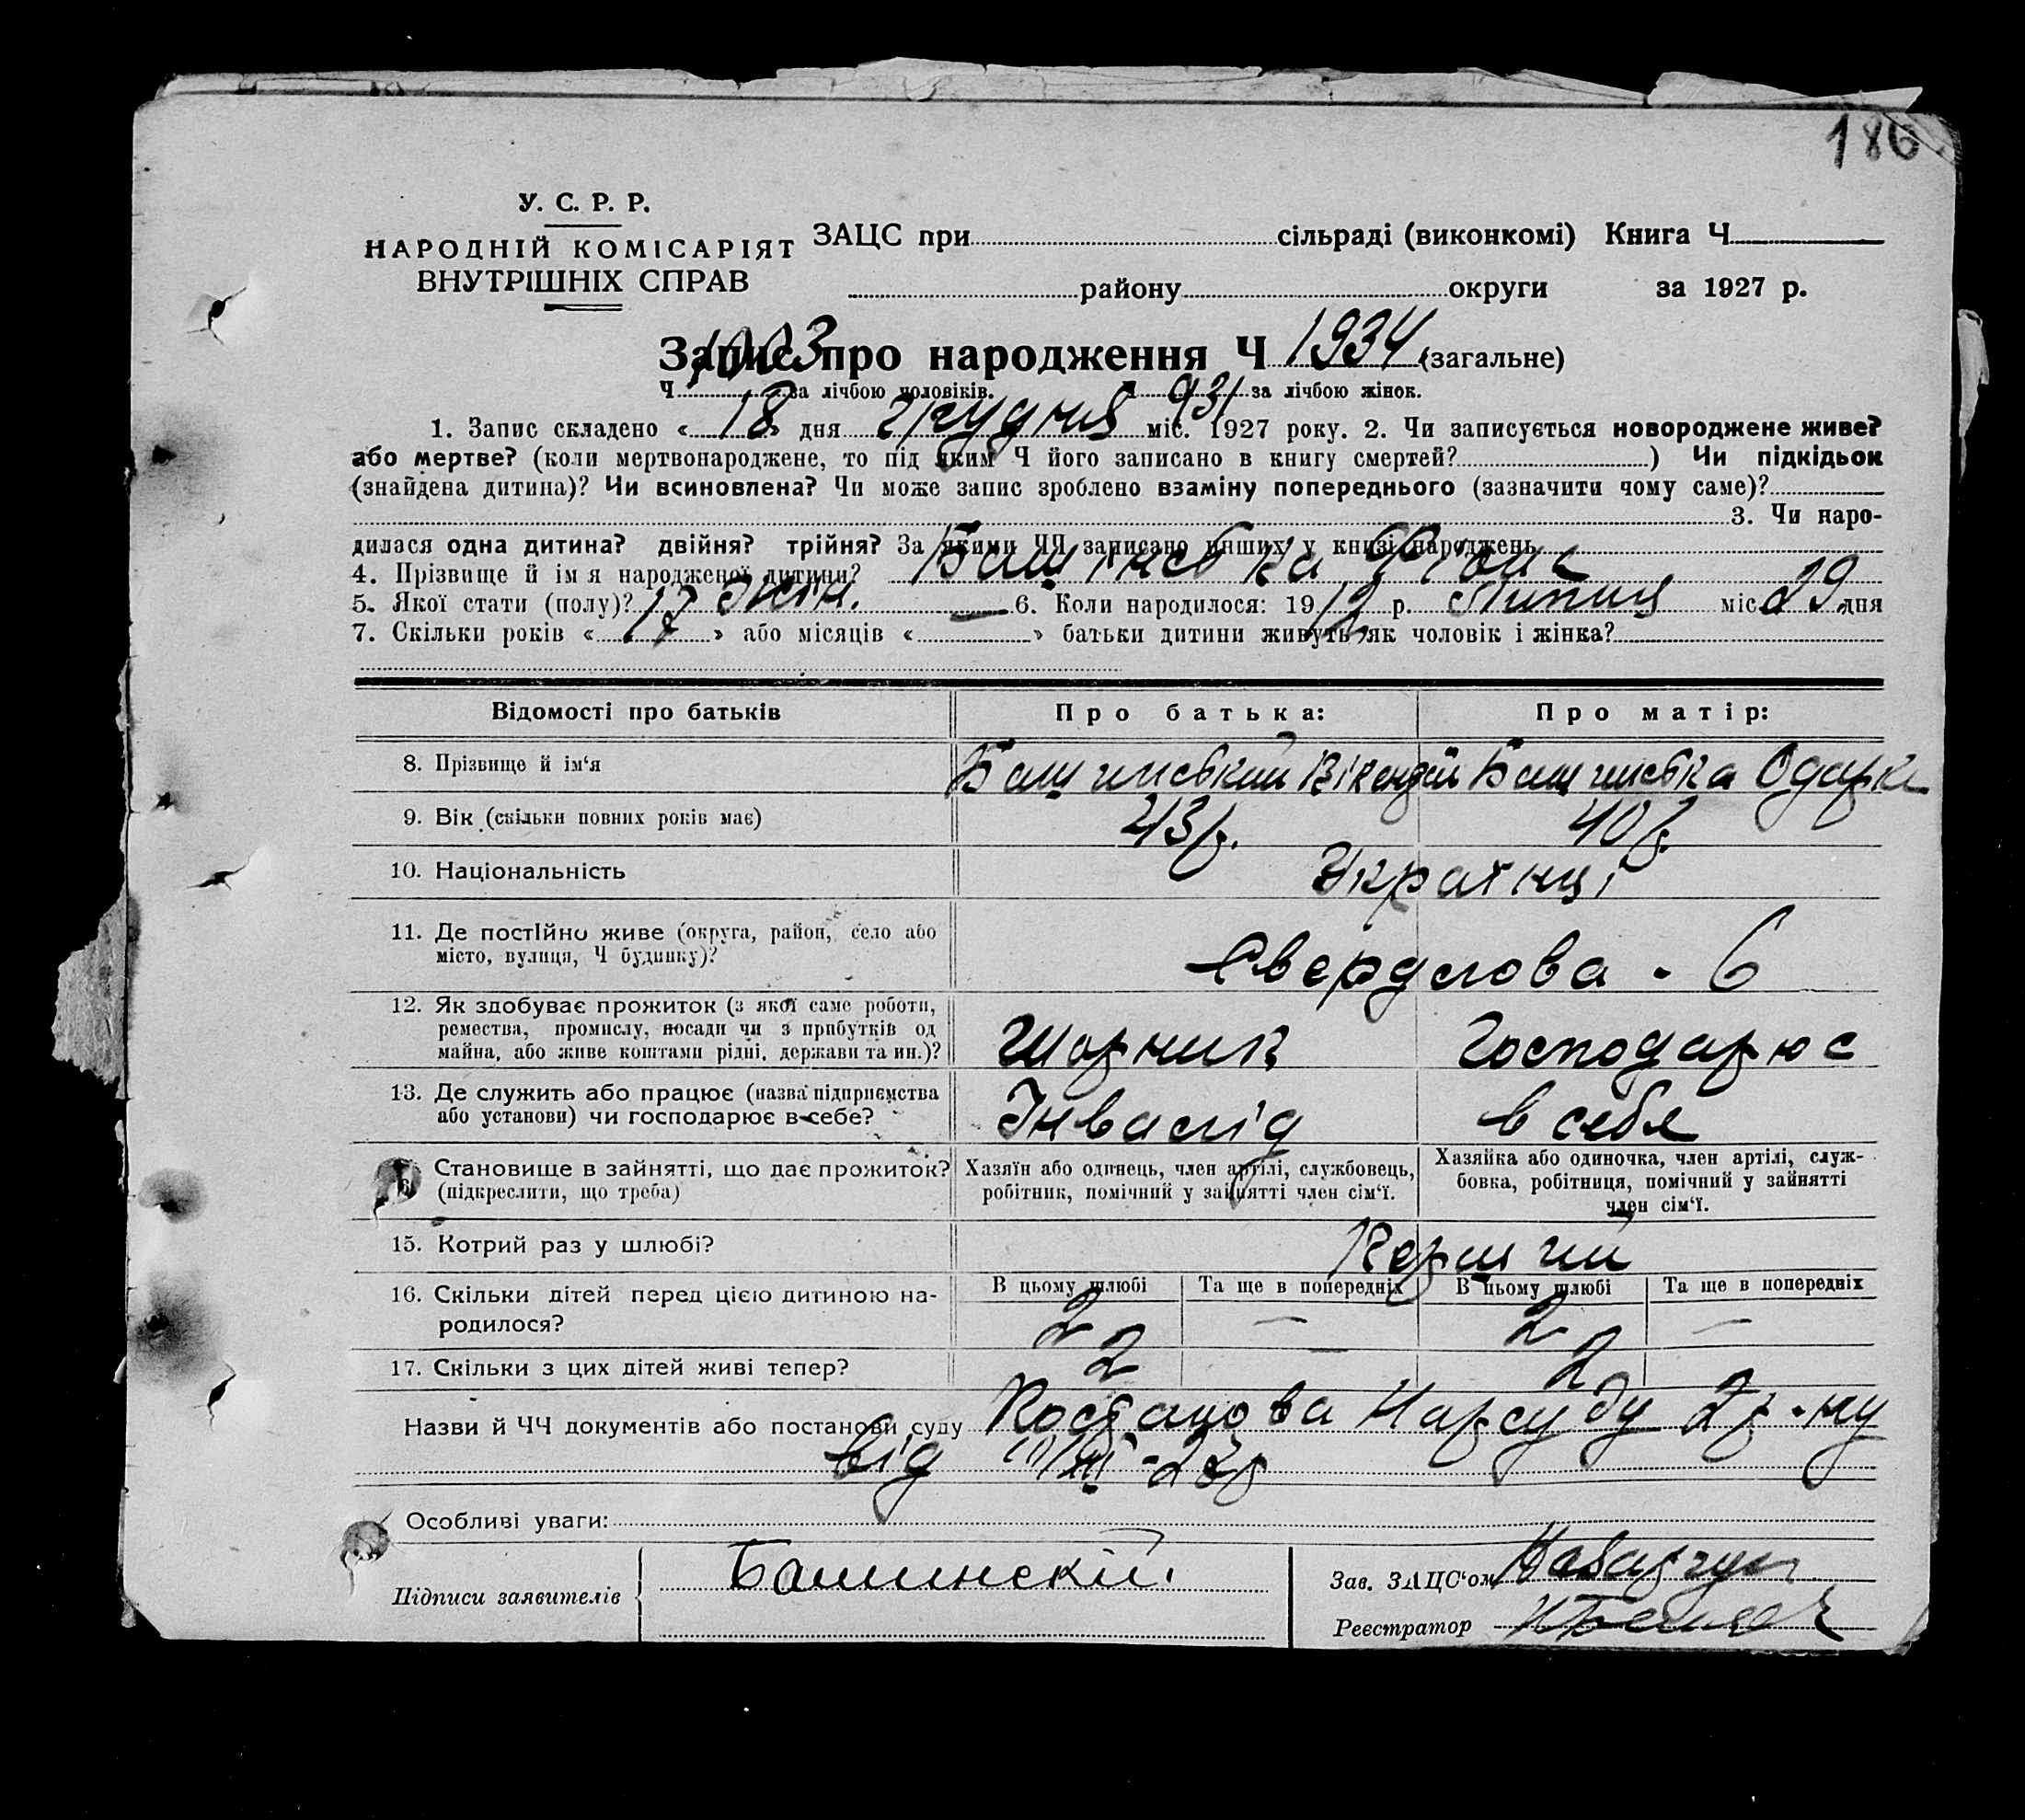 186
У. С. Р. Р.
НАРОДНІЙ КОМІСАРІЯТ
ВНУТРІШНІХ СПРАВ
ЗАЦС при сільраді (виконкомі) Книга Ч
району округи за 1927 р.
Запис про народження Ч 1934 (загальне)
Ч 1003 за лічбою чоловіків. Ч 931 за лічбою жінок.
1. Запис складено « 18 » дня грудня міс. 1927 року. 2. Чи записується новороджене живе?
або мертве? (коли мертвонароджене, то під яким Ч його записано в книгу смертей? ) Чи підкідьок
(знайдена дитина)? Чи всиновлена? Чи може запис зроблено взаміну попереднього (зазначити чому саме)?
3. Чи наро-
дилася одна дитина? двійня? трійня? За якими ЧЧ записано инших у книзі народжень
4. Прізвище й ім я народженої дитини? Башинська
5. Якої стати (полу)? жін. — 6. Коли народилося: 1912 р. Липня міс 29 дня
7. Скільки років « 17 » або місяців « » батьки дитини живуть як чоловік і жінка?
Відомості про батьків Про батька: Про матір:
8. Прізвище й ім‘я Башинський Вікендій Башинська Одарка
9. Вік (скільки повних років має) 43 р. 40 р.
10. Національність Українці
11. Де постійно живе (округа, район, село або
місто, вулиця, Ч будинку)? Свердлова - 6
12. Як здобуває прожиток (з якої саме роботи,
ремества, промислу, посади чи з прибутків од
майна, або живе коштами рідні, держави та ин.)? Шорник Господарює
13. Де служить або працює (назва підприємства
або установи) чи господарює в себе? Інвалід в себя
Становище в зайнятті, що дає прожиток?
(підкреслити, що треба)
Хазяїн або одинець, член артілі, службовець,
робітник, помічний у зайнятті член сім‘ї.
Хазяйка або одиночка, член артілі, служ-
бовка, робітниця, помічний у зайнятті
член сім‘ї.
15. Котрий раз у шлюбі? Перший
16. Скільки дітей перед цією дитиною на-
родилося?
В цьому шлюбі Та ще в попередніх В цьому шлюбі Та ще в попередніх
2 — 2 —
17. Скільки з цих дітей живі тепер? 2 — 2
Назви й ЧЧ документів або постанови суду Постанова Нарсуду 27-му
від 11/XII - 27 р
Особливі уваги:
Підписи заявителів Башинскій
Зав. ЗАЦС‘ом
Реєстратор